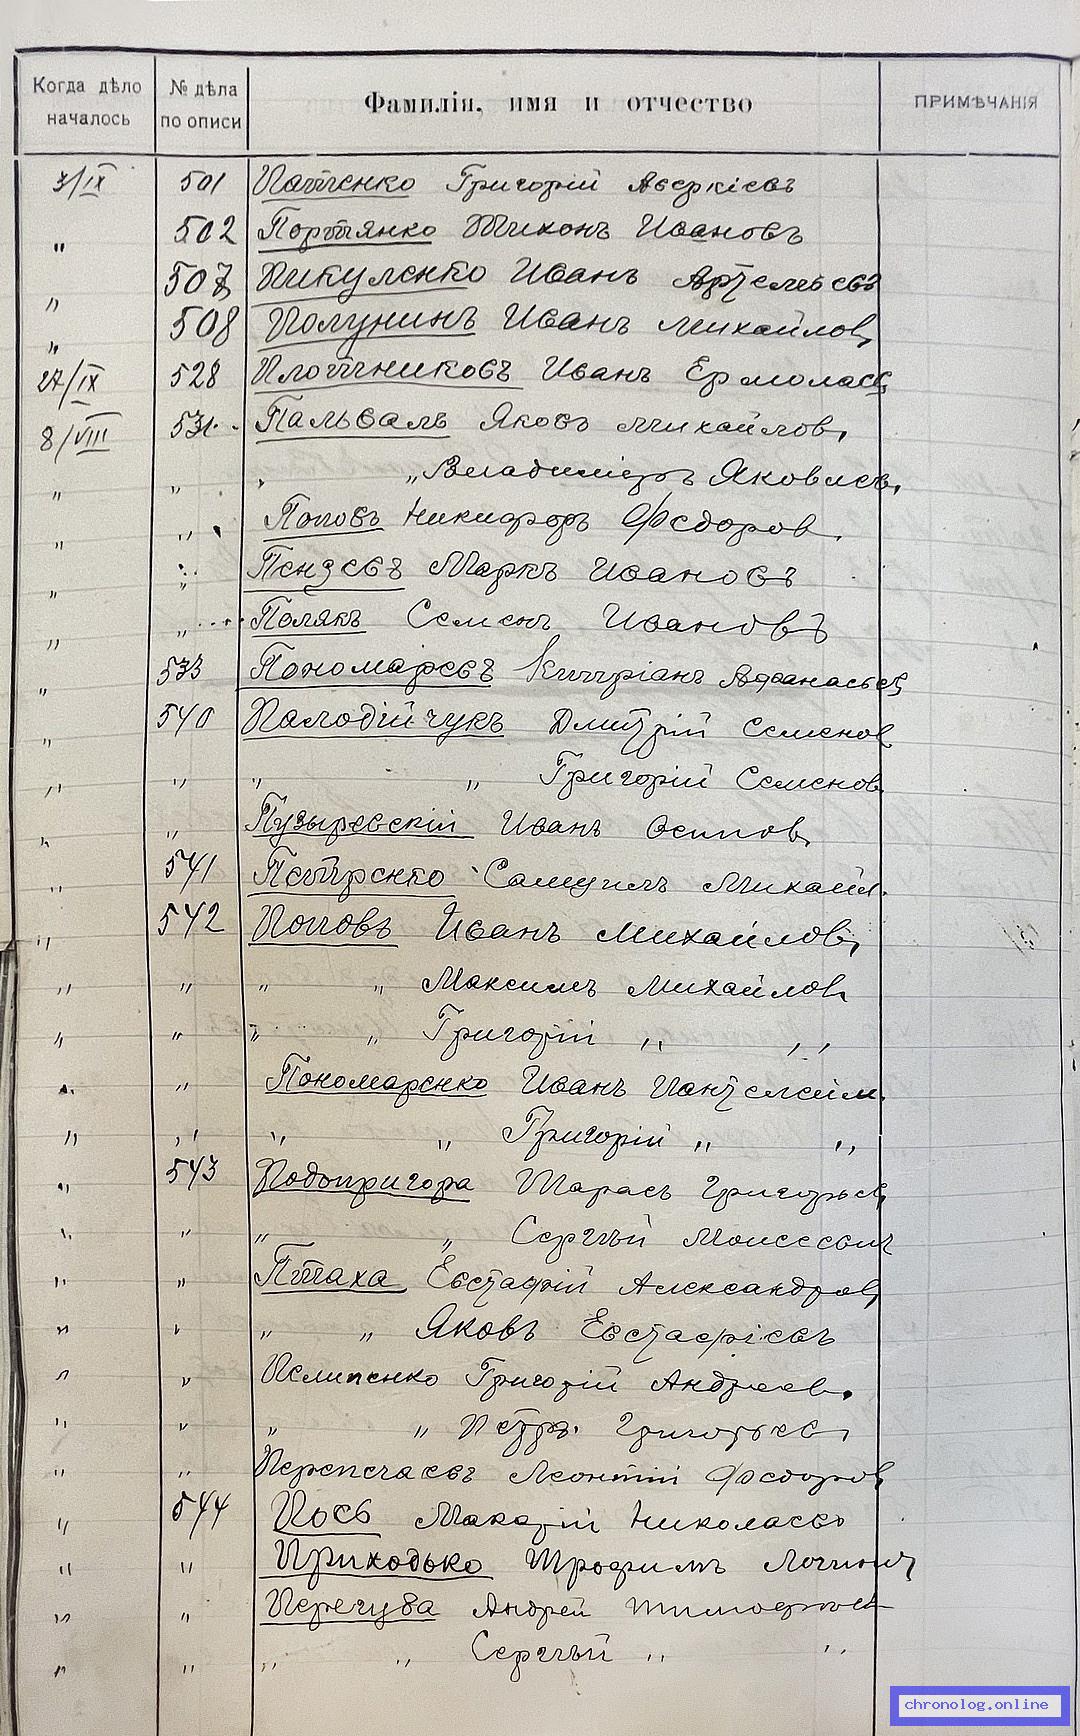 Когда дѣло началось № дѣла по описи Фамилія, имя и отчество ПРИМѢЧАНІЯ
3/IX 501 Патенко Григорій Аверкіевъ
" 502 Портянко Тихонъ Ивановъ
" 507 Пикуленко Иванъ Артемьевъ
" 508 Полунинъ Иванъ Михайлов,
27/IX 528 Плотниковъ Иванъ Ермолаев
8/VIII 531 Пальваль Яковъ Михайлов,
" " " " Владиміръ Яковлев,
" " Поповъ Никифоръ Федоров,
" " Пендевъ Маркъ Ивановъ
" " Полякъ Семенъ Ивановъ
" 533 Пономаревъ Кипріанъ Афанасьев
" 540 Памодійчукъ Дмитрій Семенов
" " " " Григорій Семенов
" " Пузыревскій Иванъ Осипов,
" 541 Петренко Самуилъ Михайл.
" 542 Поповъ Иванъ Михайлов,
" " " " Максимъ Михайлов,
" " " " Григорій " "
" " Пономаренко Иванъ Пантелейм.
" " " " Григорій " "
" 543 Подопригора Тарасъ Григорьев,
" " " " Сергѣй Моисеевич
" " Птаха Евстафій Александров,
" " " " Яковъ Евстафіевъ
" " Пелипенко Григорій Андреев.
" " " " Петръ. Григорьев,
" " Перепечаевъ Леонтій Федоров,
" 544 Посъ Макарій Николаевъ
" " Приходько Трофимъ
" " Перечува Андрей Тимофеев
" " " " Сергѣй " "
chronolog.online